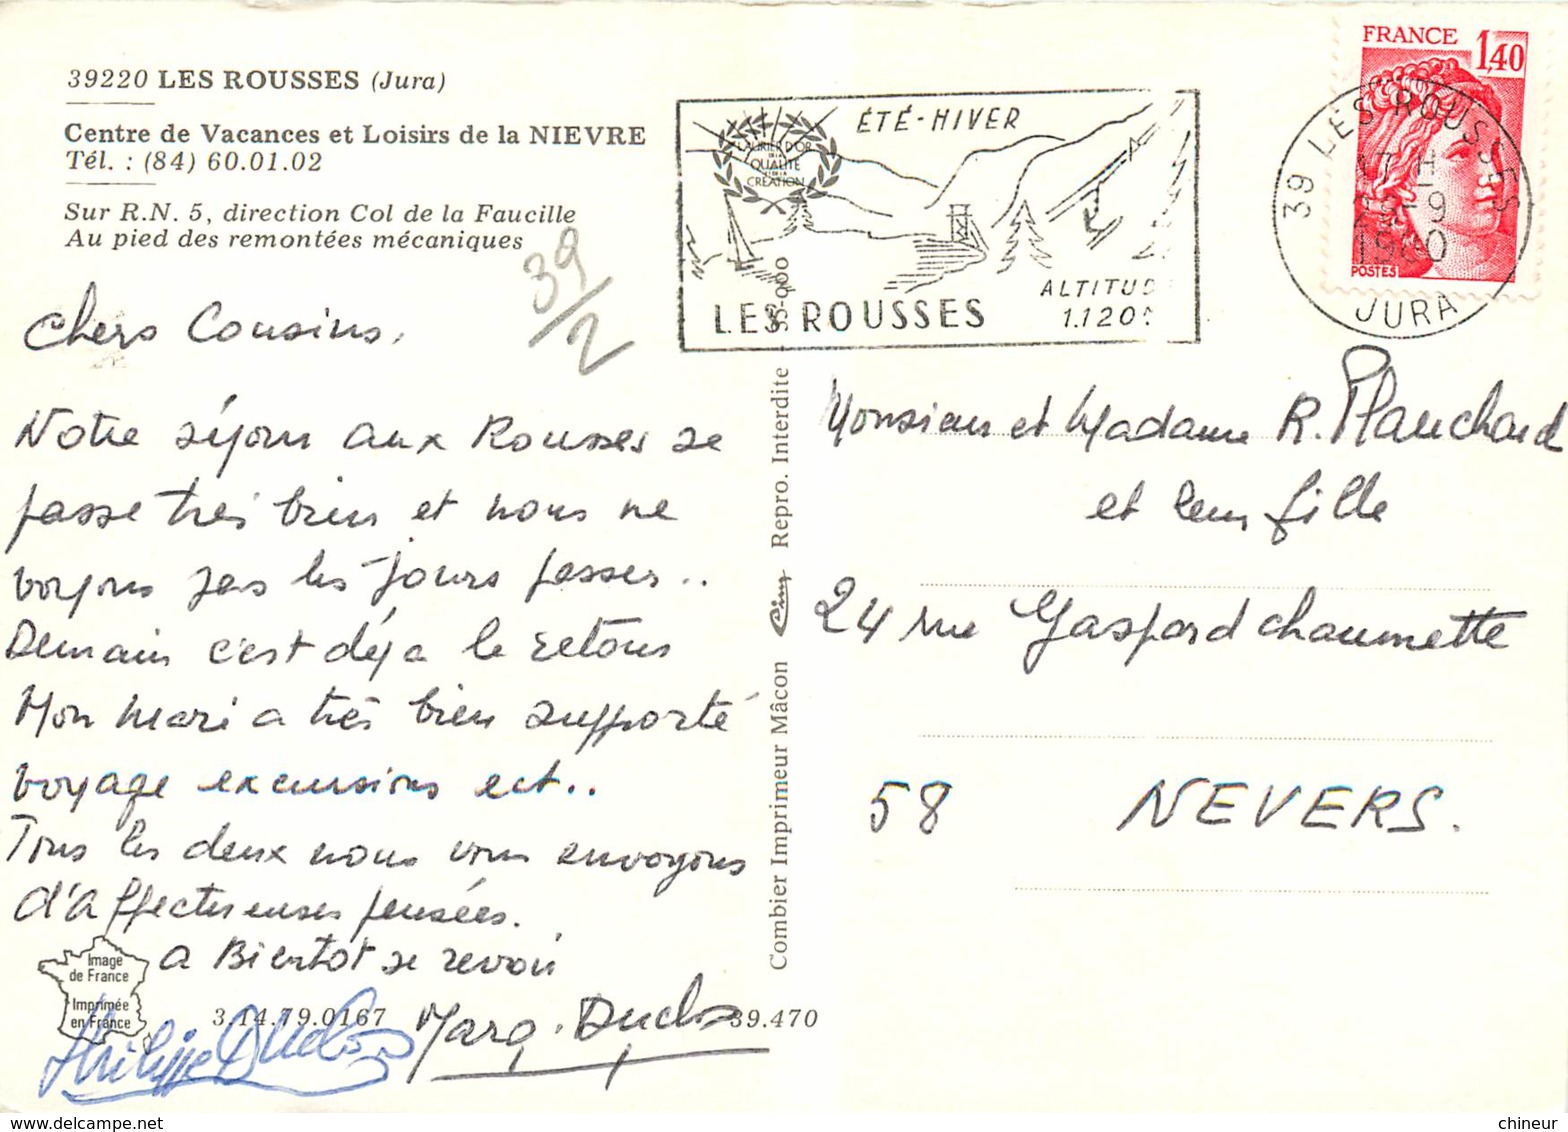 39220 LES ROUSSES (Jura)
Centre de Vacances et Loisirs de la NIEVRE
Tél. : (84) 60.01.02
Sur R.N. 5, direction Col de la Faucille
Au pied des remontées mécaniques
39/2
Chers Cousins,
Notre séjour aux Rousses se
passe très bien et nous ne
voyons pas les jours passer..
Demain c'est déja le retour
Mon mari a très bien supporté
voyage excursions ect..
Tous les deux nous vous envoyons
d'affectueuses pensées.
a Bientot se revoir
Philippe Duclos
Marg. Duclos
Image
de France
Imprimée
en France
3.14.79.0167
39.470
Combier Imprimeur Mâcon Cim Repro. Interdite - 35-000
LAURIER D'OR
DE LA
QUALITÉ
ET DE LA
CRÉATION
ÉTÉ-HIVER
ALTITUD
1.120
LES ROUSSES
FRANCE
1,40
POSTES
39 LES ROUSSES
17 H
-9
1980
JURA
Monsieur et Madame R. Planchard
et leur fille
24 rue Gaspard chaumette
58 NEVERS.
www.delcampe.net
chineur